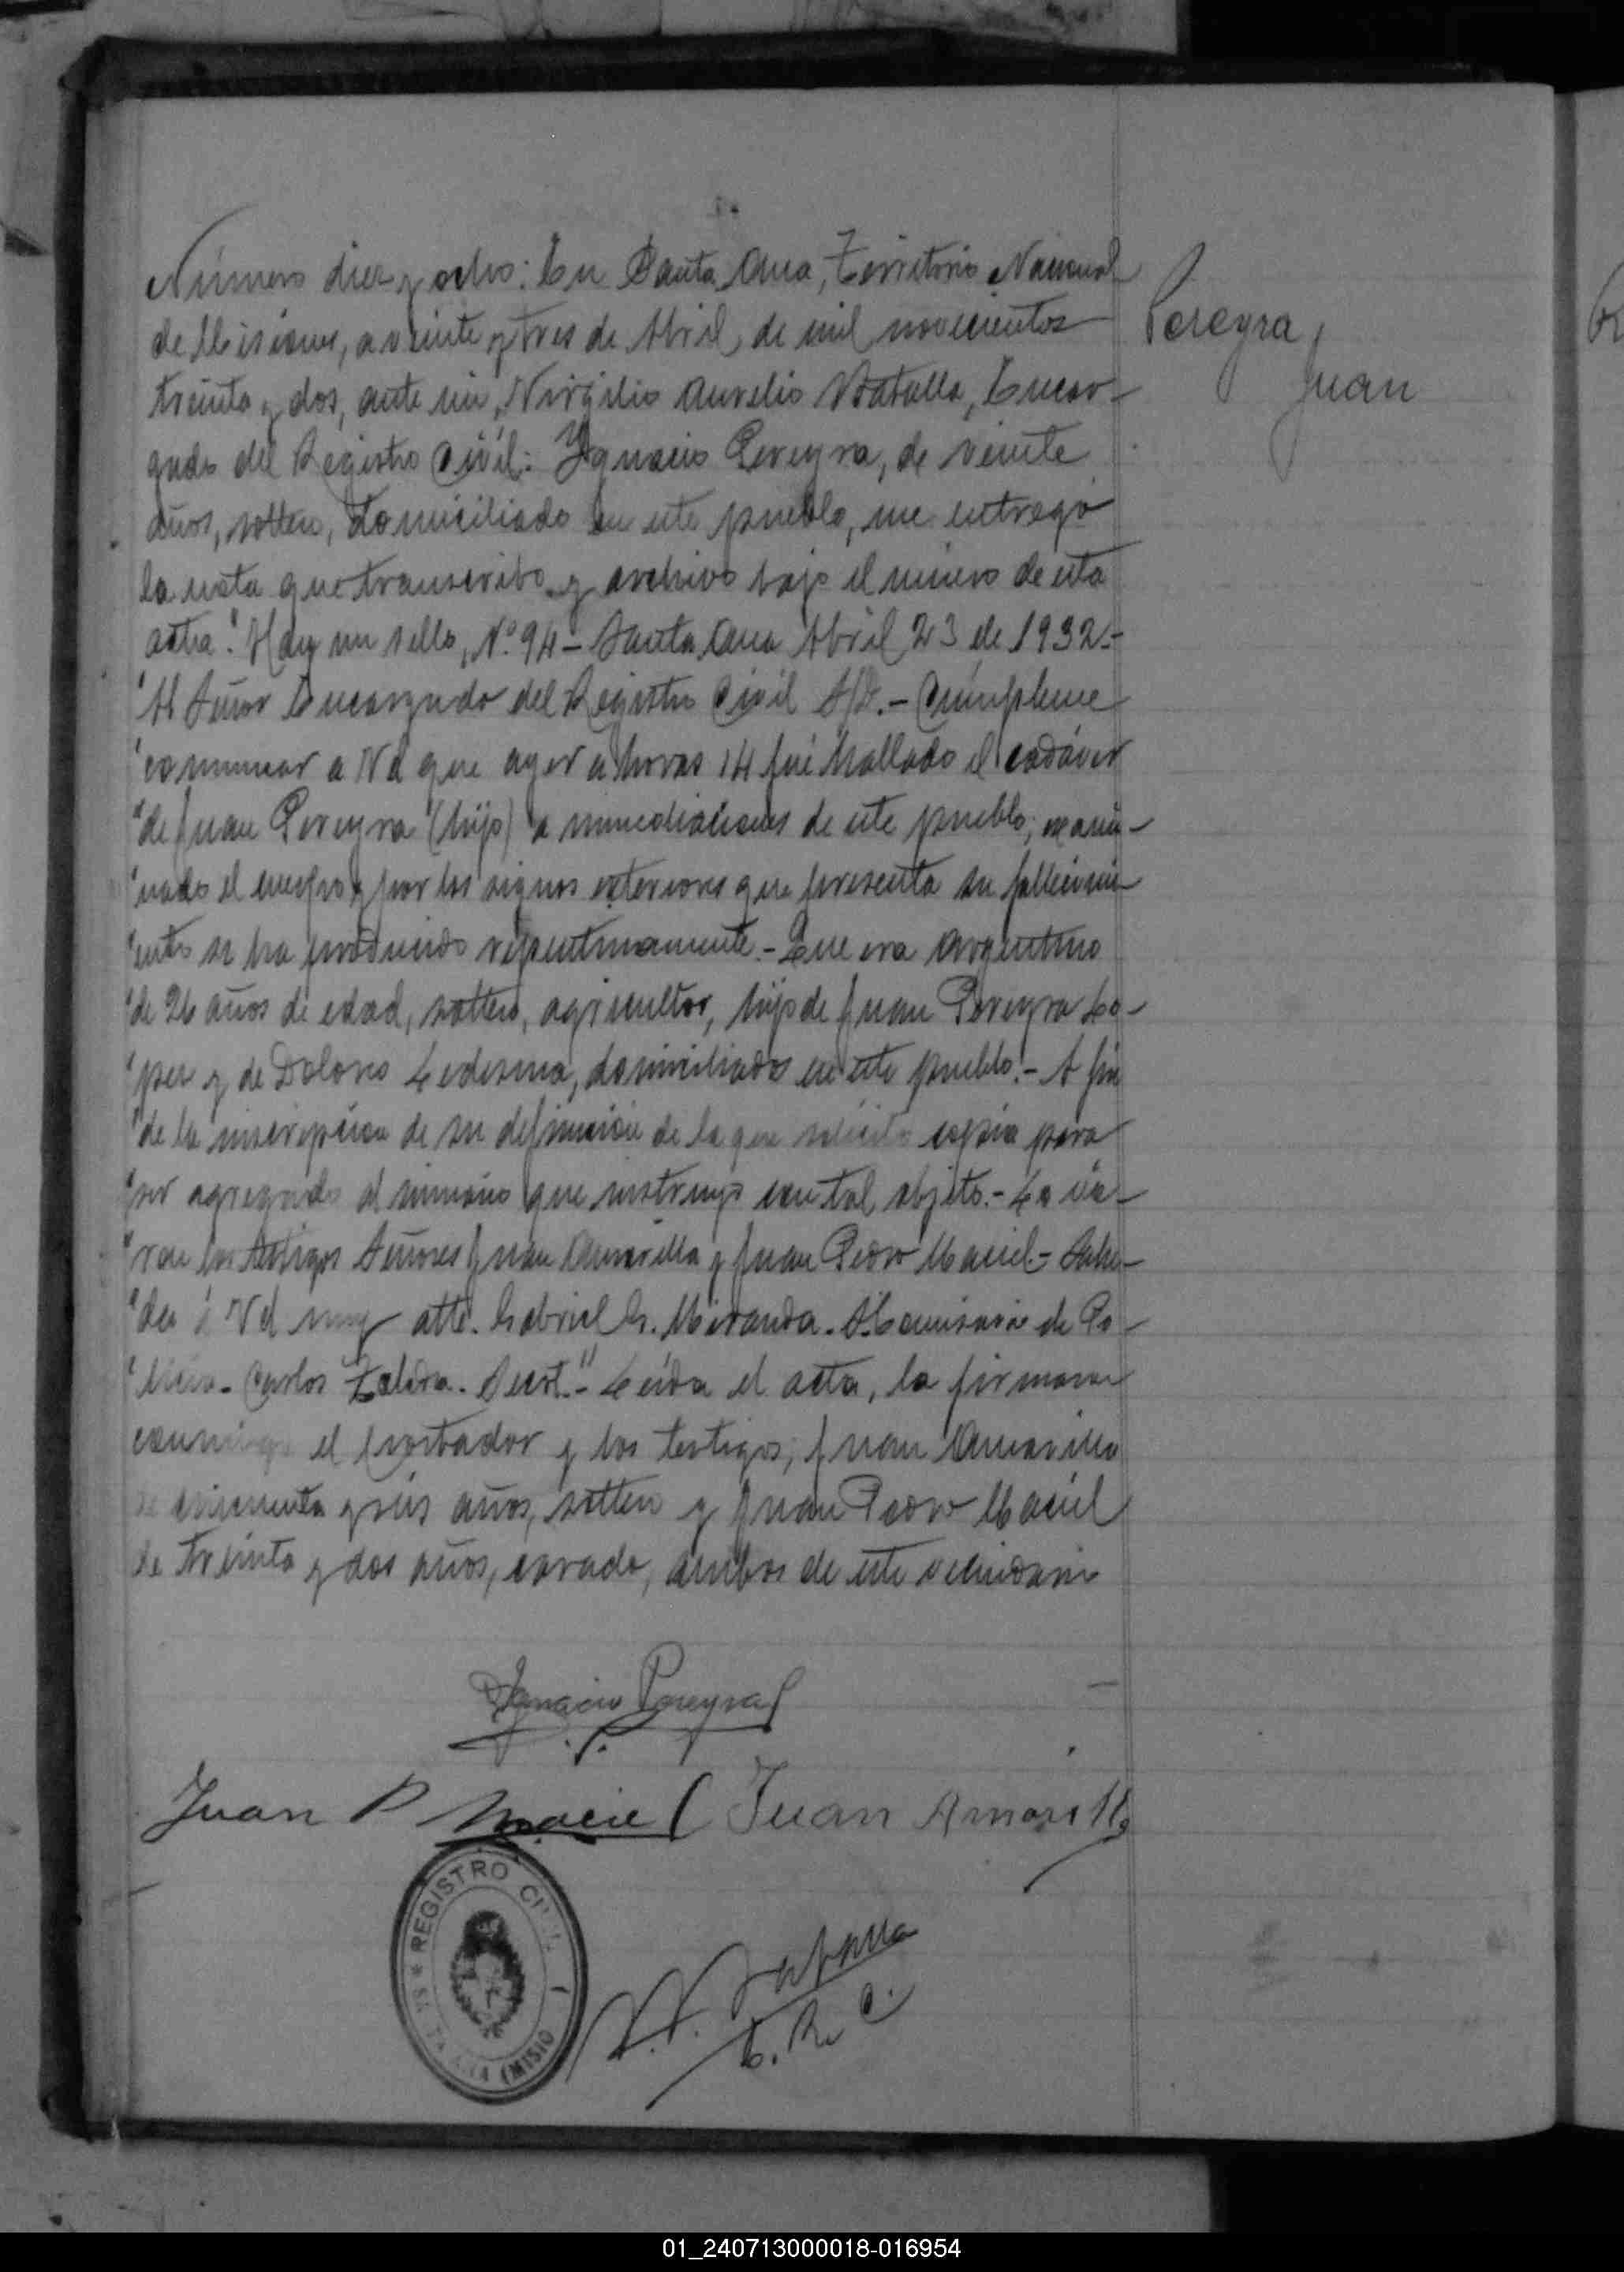 Número diez y ocho: En Santa Ana, Territorio Nacional
de Misiones, a veinte y tres de Abril de mil novecientos
treinta y dos, ante mi, Virgilio Aurelio Batalla, Encar-
gado del Registro Civil: Ygnacio Pereyra, de veinte
años, soltero, domiciliado en este pueblo, me entregó
la nota que transcribo y archivo bajo el número de esta
acta: "Hay un sello, No. 94 - Santa Ana Abril 23 de 1932.-
"Al Señor Encargado del Registro Civil S/D.- Cúmpleme
"comunicar a Vd que ayer a horas 14 fué hallado el cadáver
"de Juan Pereyra (hijo) a inmediaciones de este pueblo; exami-
"nado el cuerpo y por los signos exteriores que presenta su fallecimi-
"ento se ha producido repentinamente.- Que era argentino
"de 26 años de edad, soltero, agricultor, hijo de Juan Pereyra Lo-
"pez y de Dolores Ledesma, domiciliados en este pueblo.- A fin
"de la inscripción de su defunción de la que solicito copia para
"ser agregado al sumario que instruyo con tal objeto.-
los testigos Señores Juan Amarilla y Juan Pedro Maciel.- Salu-
"da á Vd muy atte. Gabriel G. Miranda. S. Comisario de Po-
"licia. Carlos Secret." - Leída el acta, la firmaron
conmigo el portador y los testigos; Juan Amarilla
de cincuenta y seis años, soltero y Juan Pedro Maciel
de treinta y dos años, casado, ambos de este vecindario
Pereyra,
Juan
Ygnacio Pereyra
Juan P Maciel Juan Amarilla
REGISTRO CIVIL
STA ANA (MISIO
V. A. Batalla
E. R. C.
01_240713000018-016954